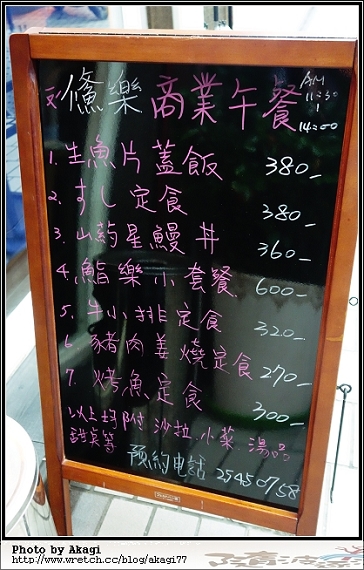 樂商業午餐 AM 11:30
14:00
1. 生魚片蓋飯 380-
2. すし定食 380-
3. 山葯星鰻丼 360-
4. 鮨樂小套餐 600-
5. 牛小排定食 320-
6. 豬肉姜燒定食 270-
7. 烤魚定食 300-
以上均附沙拉.小菜.湯品
甜点等
預約电話 29450758
Photo by Akagi
http://www.wretch.cc/blog/akagi77